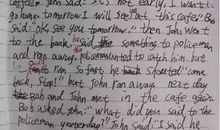 coffee John said: "it's not early, I want to
go home, tomorrow I will see at, this cafer," Bo
said: ok, see you tomorrow." then John went
to the bank said something to policeman
and ran away, policeman wanted to catch him but
can't run so fast he shouted "come
back, stop! But John ran away next day
Bob and John met in the cafe again
Bob asked John: "what did you said to the
policeman yesterday?" John said: "I said he